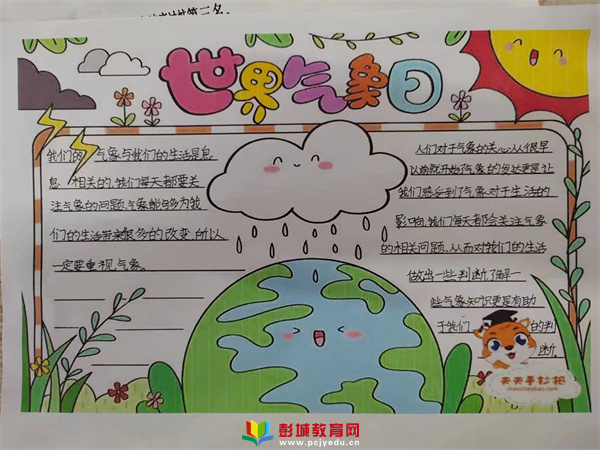 第三名。
世界气象日
我们的 气象与我们的生活是息
息 相关的,我们每天都要关
注气象的问题,气象能够为我
们的生活带来很多的改变,所以
一定要重视气象。
人们对于气象的关心从很早
以前就开始了气象的发达更是让
我们感受到了气象对于生活的
影响,我们每天都会关注气象
的相关问题,从而对我们的生活
做出一些判断了解一
些气象知识更是有助
于我们 的判
断
天天手抄报
彭城教育网
www.pcjyedu.cn